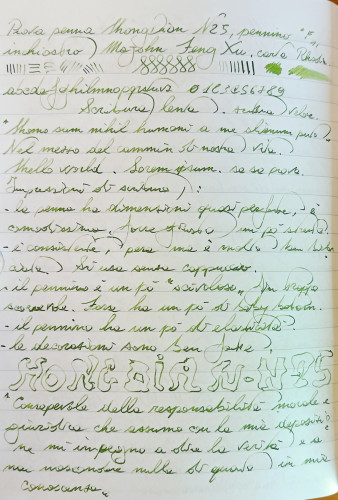 Prova penna Hongdian N23, pennino "F",
inchiostro Majohn Feng Xu, carta Rhodia
abcdefghilmnopqrstuvz 0123456789
Scrittura lenta, scrittura veloce.
"Homo sum nihil humani a me alienum puto"
Nel mezzo del cammin di nostra vita.
Hello world. Lorem ipsum. sa sa prova.
Impressioni di scrittura:
- la penna ha dimensioni quasi perfette, è
comodissima. Forse grosso un pò strano.
- è consistente, pesa ma è molto ben
Si usa senza cappuccio.
- il pennino è un pò "scivoloso". Un troppo
scorrevole. Forse ha un pò di baby bottom.
- il pennino ha un pò di elasticità?
- le decorazioni sono ben fatte.
HONGDIAN-N23
"Consapevole della responsabilità morale e
giuridica che assumo con la mia deposizione
mi impegno a dire la verità e a
non nascondere nulla di quanto in mia
conoscenza"